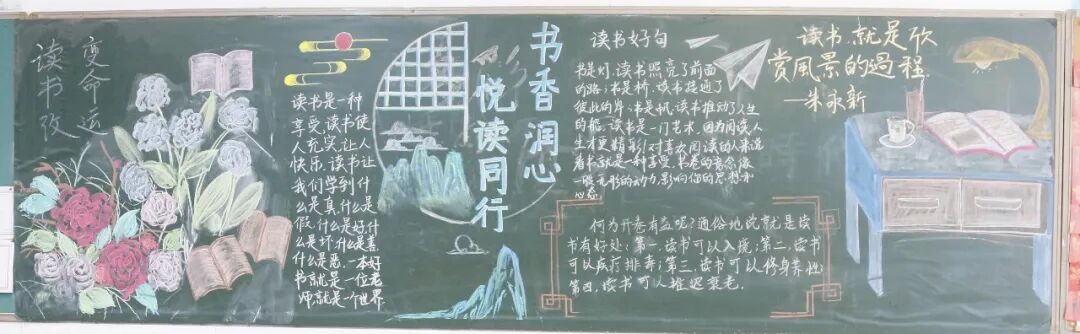 读书改
变命运
读书是一种
享受,读书使
人充实,让人
快乐.读书让
我们学到什
么是真,什么是
假,什么是好,什
么是坏,什么是善,
什么是恶.一本好
书就是一位老
师,就是一个世界.
书香润心
悦读同行
读书好句
书是灯,读书照亮了前面
的路;书是桥,读书接通了
彼此的岸;书是帆,读书推动了人生
的船.读书是一门艺术,因为阅读人
生才更精彩!对喜欢阅读的人来说
看书就是一种享受,书卷的
一股无形的动力影响你的思想和
心态.
何为开卷有益呢?通俗地说就是读
书有好处:第一,读书可以入境;第二,读书
可以疾疗排弃;第三,读书可以修身养性;
第四,读书可人推迟衰老.
读书,就是欣
赏風景的過程.
—朱永新